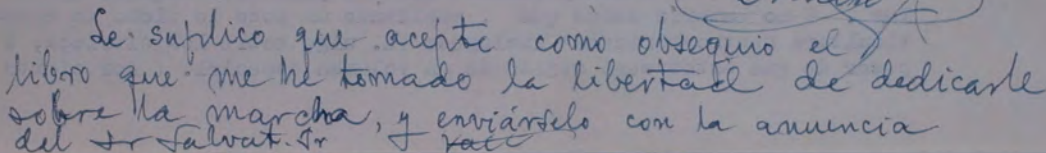 Le suplico que acepte como obsequio el
libro que me he tomado la libertad de dedicarle
sobre la marcha, y enviárselo con la anuencia
del Sr Salvat. Sr